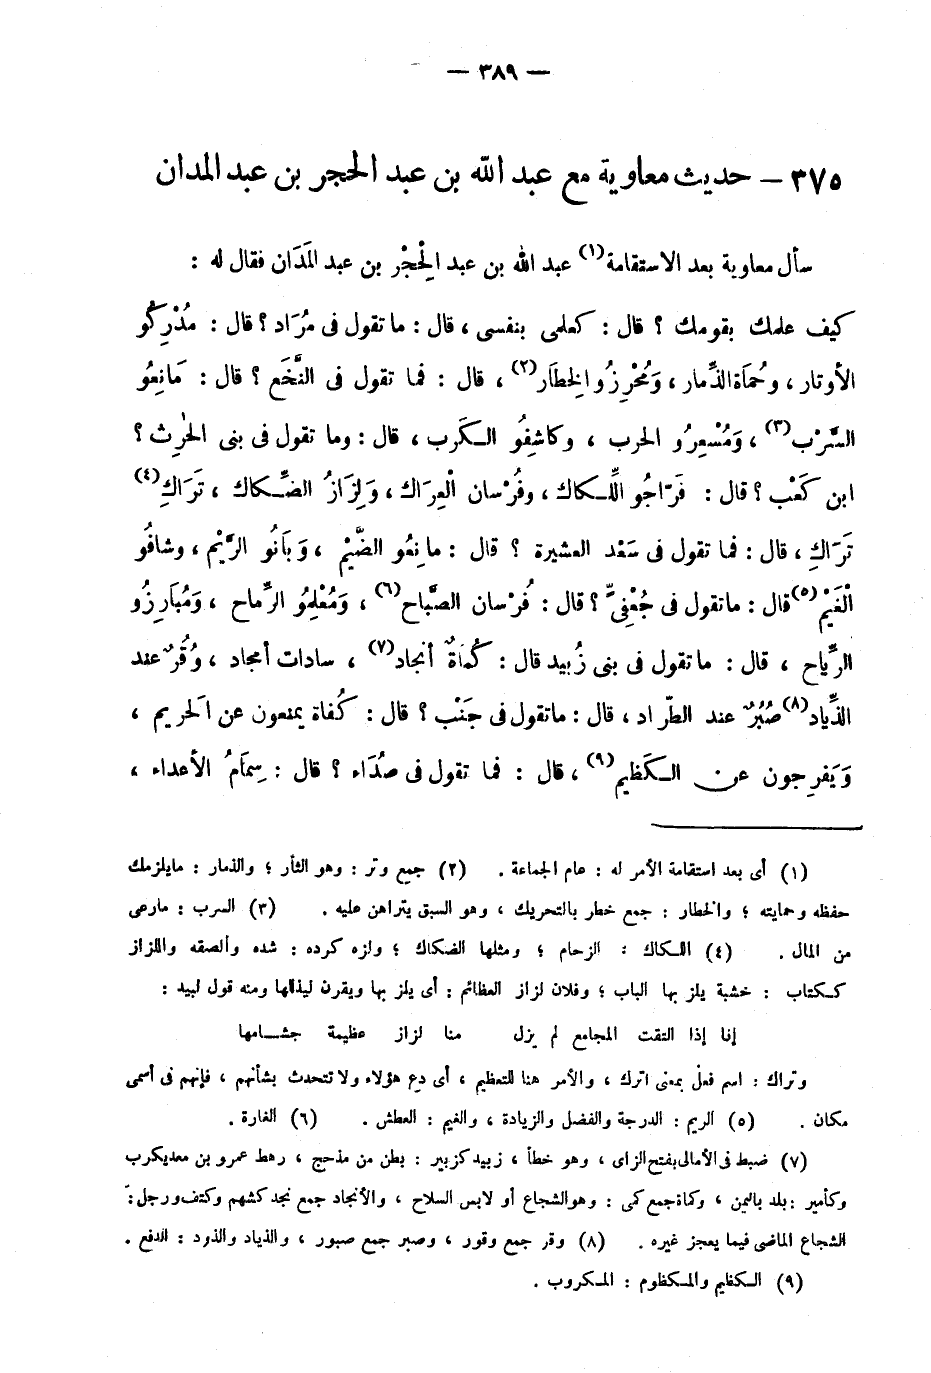 — ٣٨٩ —
٣٧٥ — حديث معاوية مع عبد الله بن عبد الحجر بن عبد المدان
سأل معاوية بعد الاستقامة(١) عبد الله بن عبد الْحِجْر بن عبد الْمَدَان فقال له :
كيف علمك بقومك ؟ قال : كعلمى بنفسى ، قال : ما تقول فى مُرَاد ؟ قال : مُدْرِكُو
الأوتار ، وحُمَاة الذِّمار ، وَمُحْرِزُو الخِطَار(٢) ، قال : فما تقول فى النَّخَع ؟ قال : مَانِعُو
السَّرْب(٣) ، وَمُسْعِرُو الحرب ، وكاشِفُو الكَرب ، قال : وما تقول فى بنى الحٰرِث ؟
ابن كَعْب ؟ قال : فَرّاجُو اللِّكاك ، وفُرْسان الْعِرَاك ، وَلِزَازُ الضِّكاك ، تَرَاكِ(٤)
تَرَاكِ ، قال : فما تقول فى سَعْد العشيرة ؟ قال : مانِعُو الضَّيْم ، وَبَانُو الرَّيْم ، وشافُو
الْغَيْم(٥) قال : ما تقول فى جُعْفِىّ ؟ قال : فُرْسان الصَّبَاح(٦) ، وَمُعْلِمُو الرِّماح ، وَمُبَارِزُو
الرِّيَاح ، قال : ما تقول فى بنى زُبيد قال : كُمَاةٌ أنجاد(٧) ، سادات أمجاد ، وُقُرٌ عند
الذِّياد(٨) صُبُرٌ عند الطّراد ، قال : ما تقول فى جَنْب ؟ قال : كُفاة يمنعون عن الَحريم ،
وَيَفرِجون عن الكَظيم(٩) ، قال : فما تقول فى صُدَاء ؟ قال : سِمَامُ الأعداء ،
(١) أى بعد استقامة الأمر له : عام الجماعة . (٢) جمع وتر : وهو الثأر ؛ والذمار : مايلزمك
حفظه وحمايته ؛ والخطار : جمع خطر بالتحريك ، وهو السبق يتراهن عليه . (٣) السرب : مارعى
من المال . (٤) اللكاك : الزحام ؛ ومثلها الضكاك ؛ ولزه كرده : شده وألصقه واللزاز
ككتاب : خشبة يلز بها الباب ؛ وفلان لزاز العظائم : أى يلز بها ويقرن ليذللها ومنه قول لبيد :
إنا إذا التقت المجامع لم يزل منا لزاز عظيمة جشامها
وتراك : اسم فعل بمعنى اترك ، والأمر هنا للتعظيم ، أى دع هؤلاء ولا تتحدث بشأنهم ، فإنهم فى أسمى
مكان . (٥) الريم : الدرجة والفضل والزيادة ، والغيم : العطش . (٦) الغارة .
(٧) ضبط فى الأمالى بفتح الزاى ، وهو خطأ ، زبيد كزبير : بطن من مذحج ، رهط عمرو بن معديكرب
وكأمير : بلد باليمن ، وكماة جمع كمى : وهو الشجاع أو لابس السلاح ، والأنجاد جمع نجد كشهم وكتف ورجل :
الشجاع الماضى فيما يعجز غيره . (٨) وقر جمع وقور ، وصبر جمع صبور ، والذياد والذود : الدفع .
(٩) الكظيم والمكظوم : المكروب .